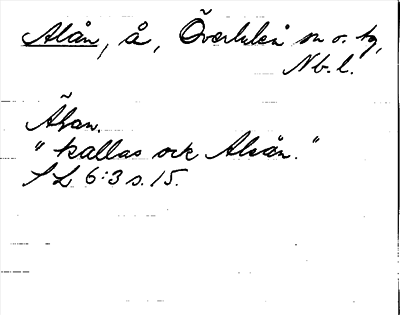 Alån, å, Överluleå sn o. tg,
Nb. l.
Åvan.
"kallas ock Alsån."
SL 6:3 s. 15.